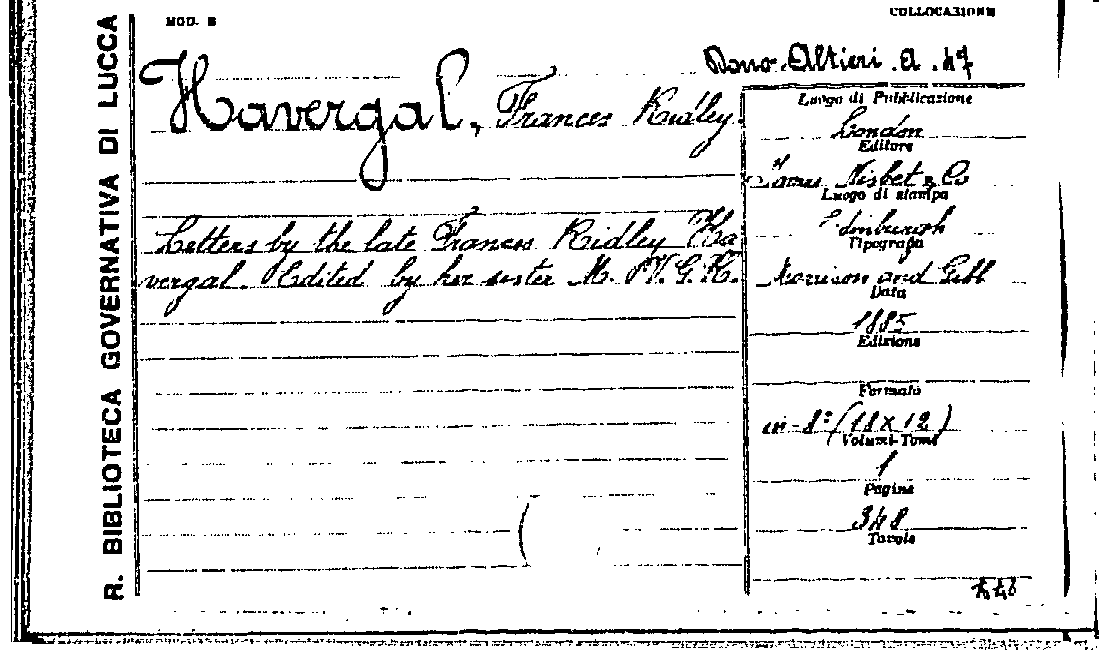 MOD. B
COLLOCAZIONE
R. BIBLIOTECA GOVERNATIVA DI LUCCA
Dono. Altieri. A. 47
Havergal, Frances Ridley.
Letters by the late Frances Ridley Ha
vergal. Edited by her sister M. V. G. H.
Luogo di Pubblicazione
London
Editore
James Nisbet & Co
Luogo di stampa
Edinburgh
Tipografo
Morrison and Gibb
Data
1885
Edizione
Formato
in-8° (18 x 12)
Volumi-Tomi
1
Pagine
348
Tavole